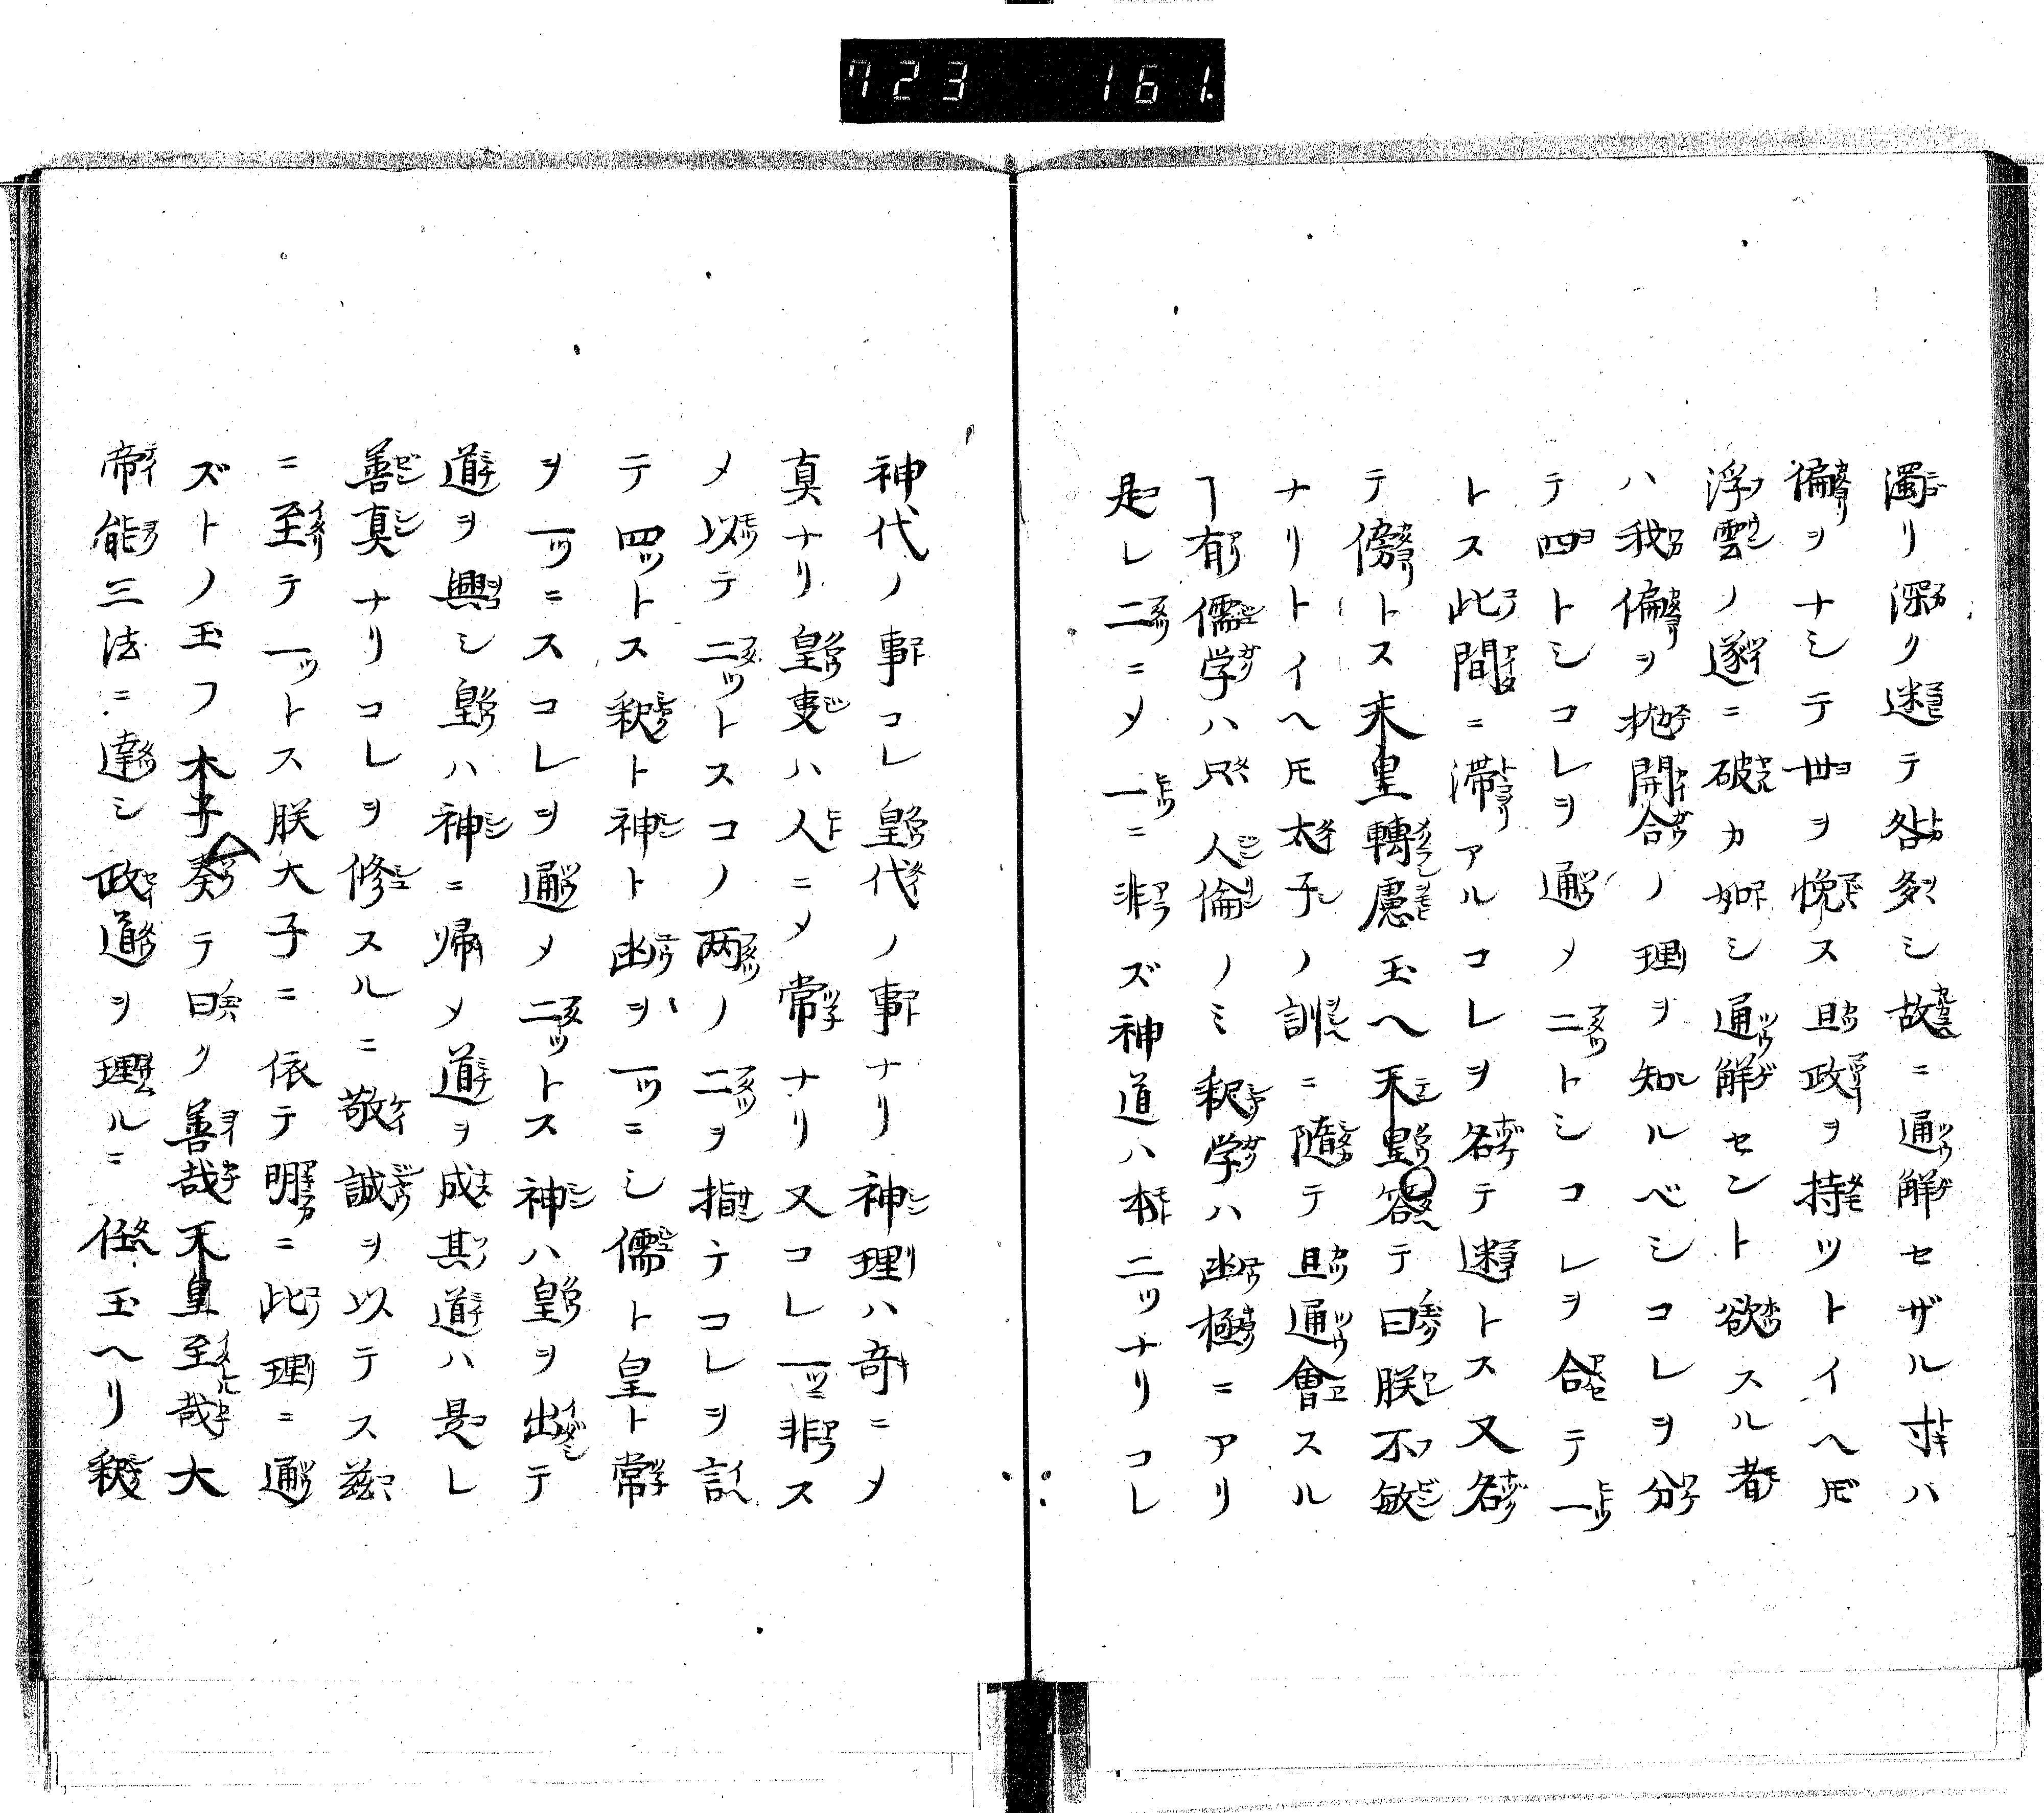 723 161.
濁リ深リ迷テ咎多シ故ニ通解セザル寸ハ
偏ヲナシテ世ヲ悗ス且政ヲ持ツトイヘ𪜈
浮雲ノ遂ニ破カ如シ通解セント欲スル者
ハ我偏ヲ抛開合ノ理ヲ知ルベシコレヲ分
テ四トシコレヲ通メ二トシコレヲ合テ一
トス此間ニ滞アルコレヲ名テ迷トス又名
テ傍トス来皇轉慮玉ヘ天皇答テ曰朕不敏
ナリトイヘ𪜈太子ノ訓ニ随テ且通會スル
ヿ有儒学ハ只人倫ノミ釈学ハ幽極ニアリ
是レ二ニメ一ニ非ズ神道ハ本二ツナリコレ
神代ノ事コレ皇代ノ事ナリ神理ハ奇ニメ
真ナリ皇事ハ人ニメ常ナリ又コレ一ニ非ス
メ以テ二ットスコノ両ノ二ヲ指テコレヲ言
テ四ットス釈ト神ト幽ヲ一ツニシ儒ト皇ト常
ヲ一ツニスコレヲ通メ二ットス神ハ皇ヲ出テ
道ヲ興シ皇ハ神ニ帰メ道ヲ成其道ハ是レ
善真ナリコレヲ修スルニ敬誠ヲ以テス茲
ニ至テ一ットス朕大子ニ依テ明ニ此理ニ通
ズトノ玉フ太子奏テ曰ク善哉天皇至哉大
帝能三法ニ達シ政道ヲ理ルニ任玉ヘリ釈